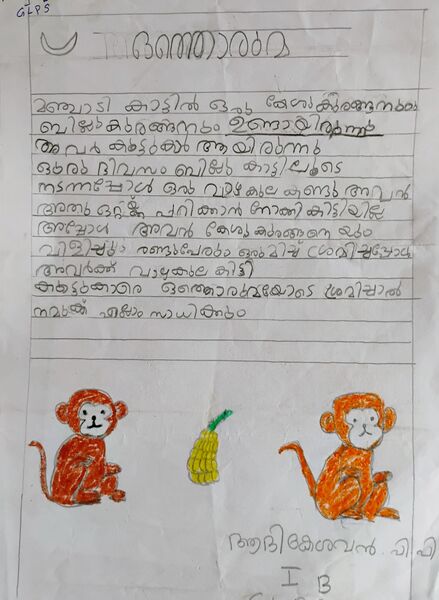 GLPS
ഒത്തൊരുമ
മഞ്ചാടി കാട്ടിൽ ഒരു കേശു കുരങ്ങനും
ബില്ലു കുരങ്ങനും ഉണ്ടായിരുന്നു
അവർ കൂട്ടുകാർ ആയിരുന്നു
ഒരു ദിവസം ബില്ലു കാട്ടിലൂടെ
നടന്നപ്പോൾ ഒരു വാഴകുല കണ്ടു അവൻ
അതു ഒറ്റയ്ക്ക് പറിക്കാൻ നോക്കി കിട്ടിയില്ല
അപ്പോൾ അവൻ കേശു കുരങ്ങനെ യും
വിളിച്ചു രണ്ടുപേരും ഒരുമിച്ച് ശ്രമിച്ചപ്പോൾ
അവർക്ക് വാഴകുല കിട്ടി
കൂട്ടുകാരെ ഒത്തൊരുമയോടെ ശ്രമിച്ചാൽ
നമുക്ക് എല്ലാം സാധിക്കും
ആദികേശവൻ. പി.പി
I B